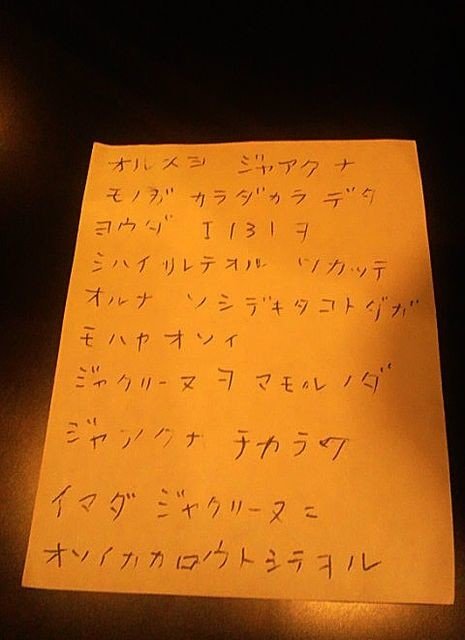 オルメシ ジャアクナ
モノガ カラダカラ デタ
ヨウダ I131ヲ
シハイリレテオル ツカッテ
オルナ ソシデキタコトダガ
モハヤオソイ
ジャクリーヌヲ マモルノダ
ジャアクナ チカラヲ
イマダ ジャクリーヌニ
オソイカカロウトシテヲル